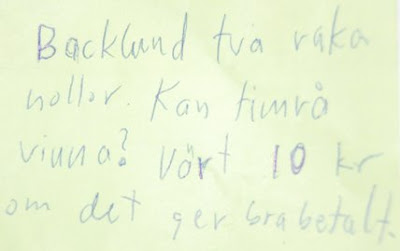 Backlund två raka
nollor. Kan timrå
vinna? Vört 10 kr
om det ger bra betalt.